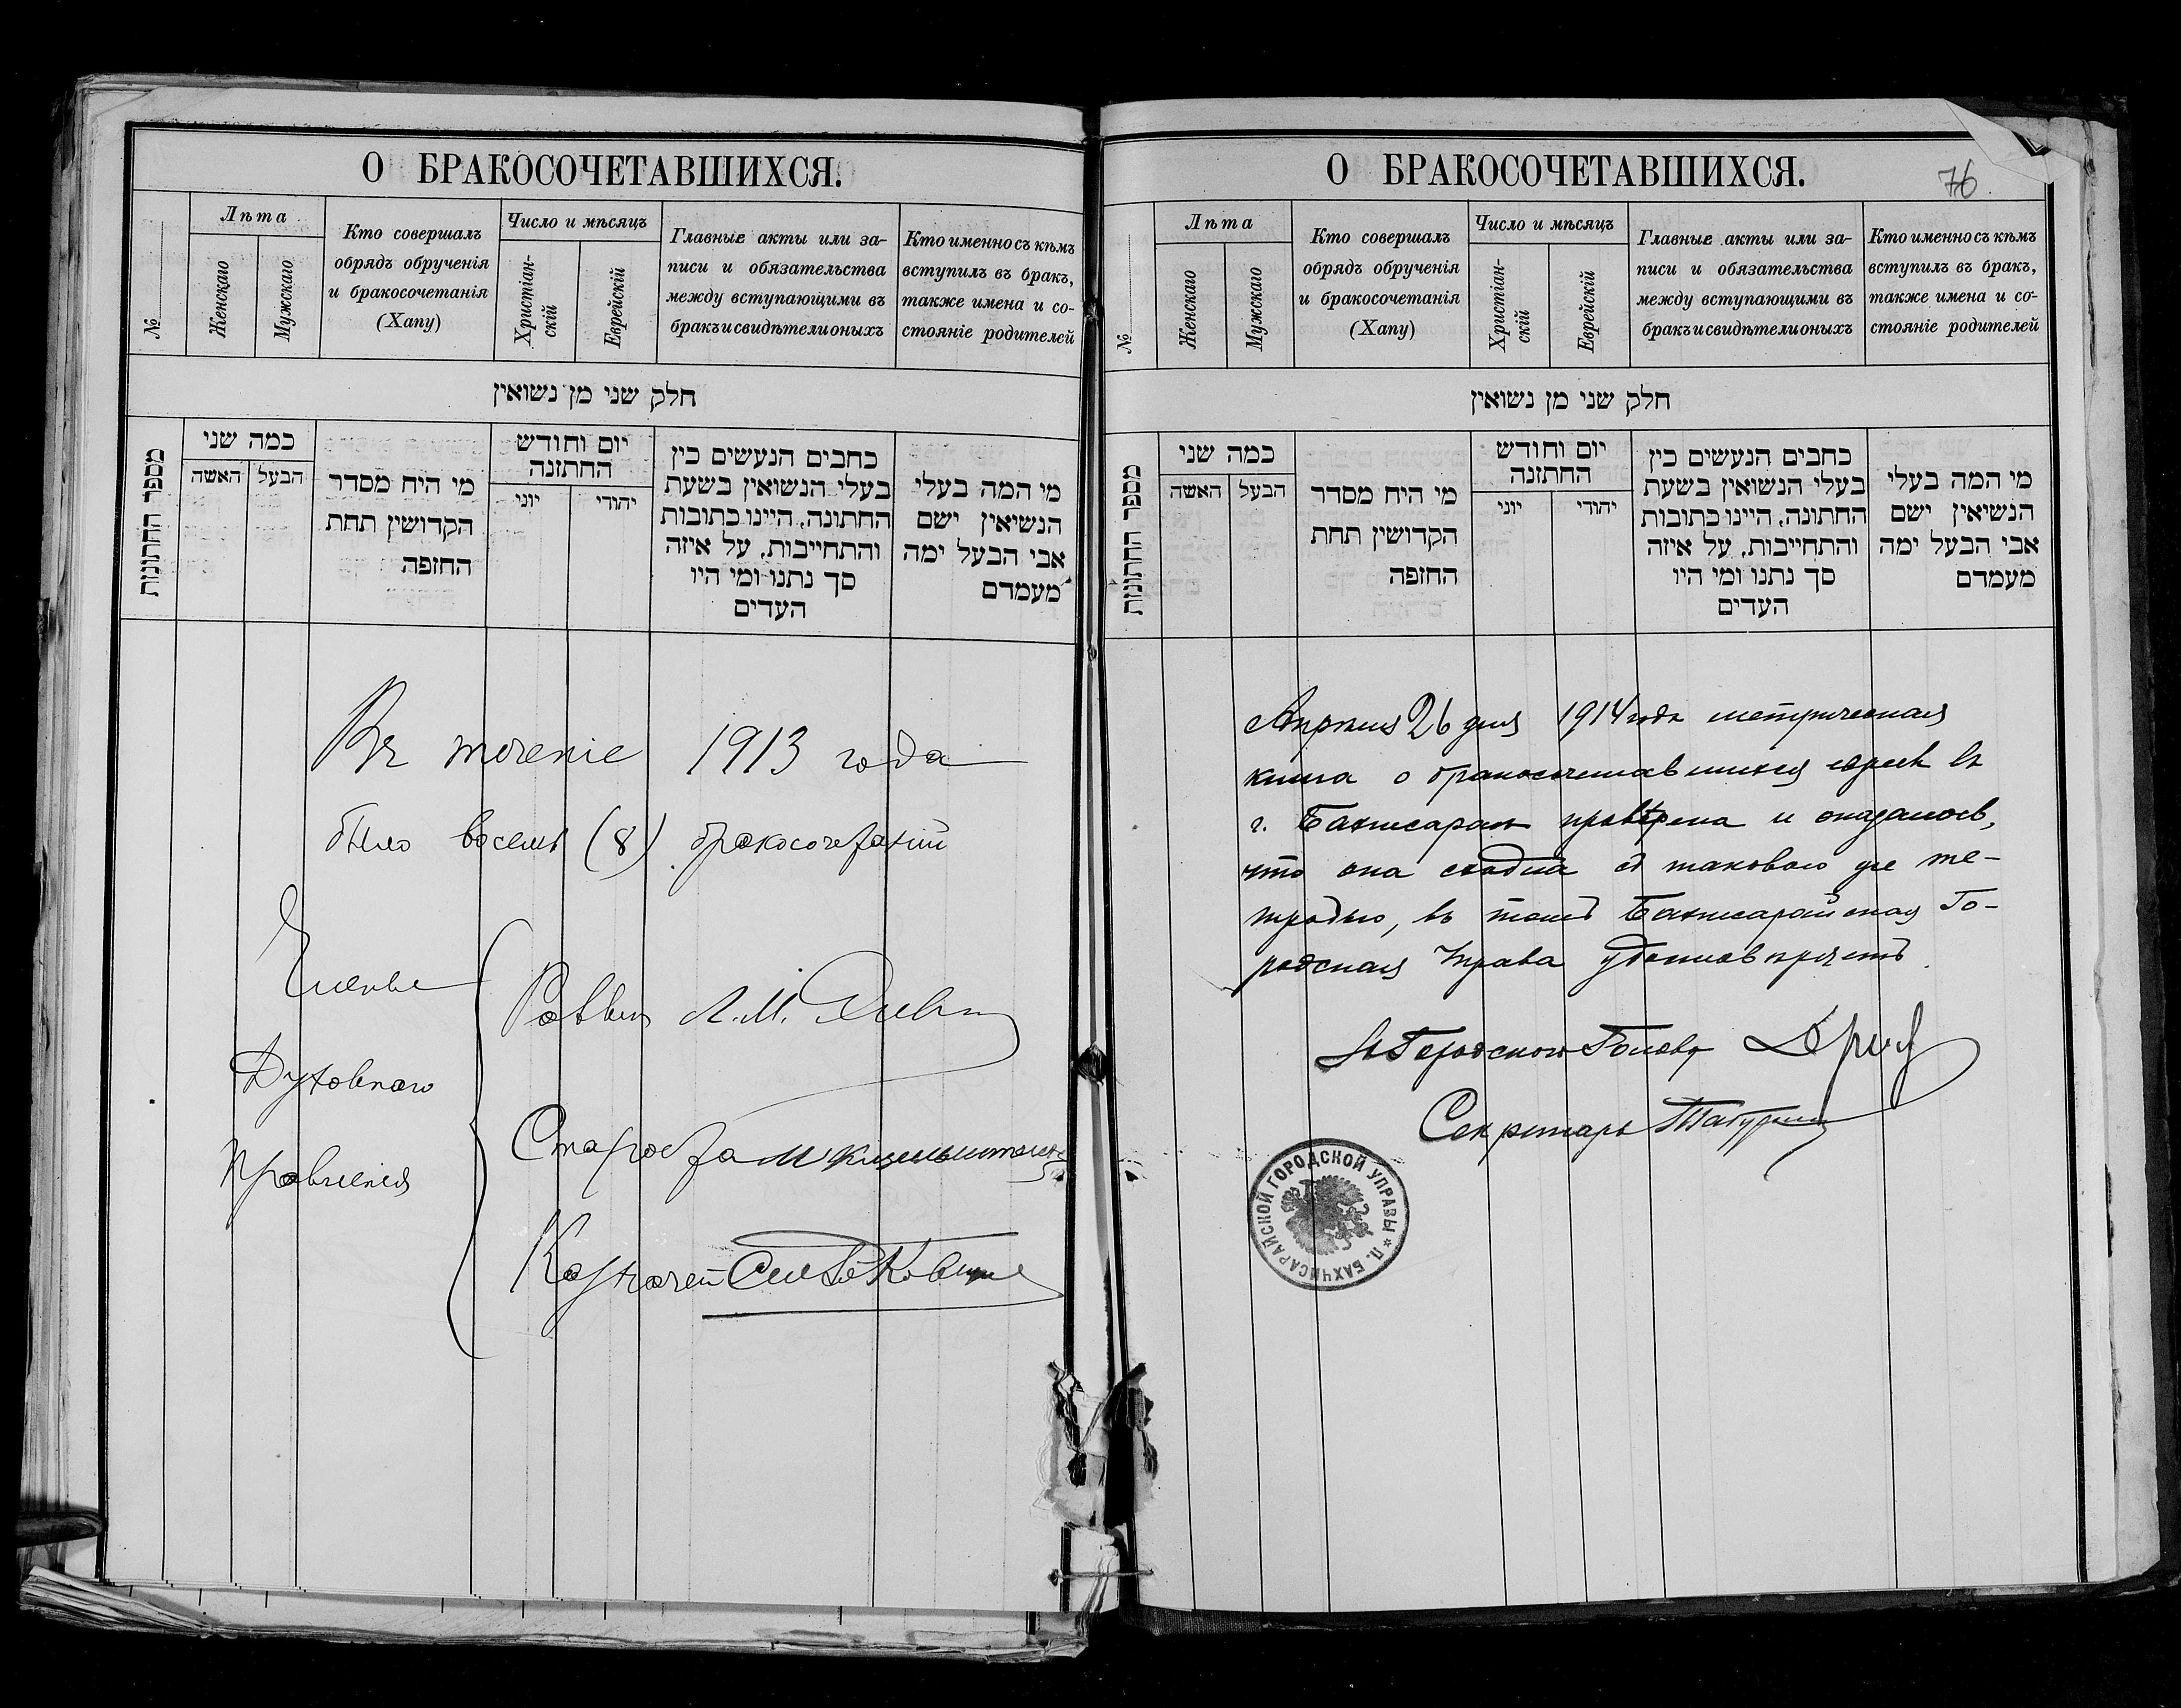 О БРАКОСОЧЕТАВШИХСЯ.
№
Лѣта
Женскаго
Мужскаго
Кто совершалъ
обрядъ обрученія
и бракосочетанія
(Хапу)
Число и мѣсяцъ
Христіан-
скій
Еврейскій
Главные акты или за-
писи и обязательства
между вступающими въ
бракъ и свидѣтели оныхъ
Кто именно съ кѣмъ
вступилъ въ бракъ,
также имена и со-
стояніе родителей
חלק שני מן נשואין
מספר החתונות
כמה שני
האשה
הבעל
מי היח מסדר
הקדושין תחת
החזפה
יום וחודש
החתזנה
יוני
יהודי
כחבים הנעשים כין
בעלי הנשואין בשעת
החתונה, היינו כתובות
והתחייבות, על איזה
סך נתנו ומי היו
העדים
מי המה בעלי
הנשיאין ישם
אבי הבעל ימה
מעמדם
Въ теченіе 1913 года
было восемь (8) бракосочетаній
Члены
Духовнаго
Правленія
Раввинъ Л. М.
Староста М
Казначей
О БРАКОСОЧЕТАВШИХСЯ.
76
№
Лѣта
Женскаго
Мужскаго
Кто совершалъ
обрядъ обрученія
и бракосочетанія
(Хапу)
Число и мѣсяцъ
Христіан-
скій
Еврейскій
Главные акты или за-
писи и обязательства
между вступающими въ
бракъ и свидѣтели оныхъ
Кто именно съ кѣмъ
вступилъ въ бракъ,
также имена и со-
стояніе родителей
חלק שני מן נשואין
מספר החתונות
כמה שני
האשה
הבעל
מי היח מסדר
הקדושין תחת
החזפה
יום וחודש
החתזנה
יוני
יהודי
כחבים הנעשים כין
בעלי הנשואין בשעת
החתונה, היינו כתובות
והתחייבות, על איזה
סך נתנו ומי היו
העדים
מי המה בעלי
הנשיאין ישם
אבי הבעל ימה
מעמדם
Апрѣля 26 дня 1914 года метрическая
книга о бракосочетавшихся евреевъ въ
г. Бахчисараѣ провѣрена и оказалось,
что она сходна съ таковою же те-
традью, въ томъ Бахчисарайская Го-
родская Управа удостовѣряетъ.
Городской Голова
Секретарь
БАХЧИСАРАЙСКОЙ ГОРОДСКОЙ УПРАВЫ * П.